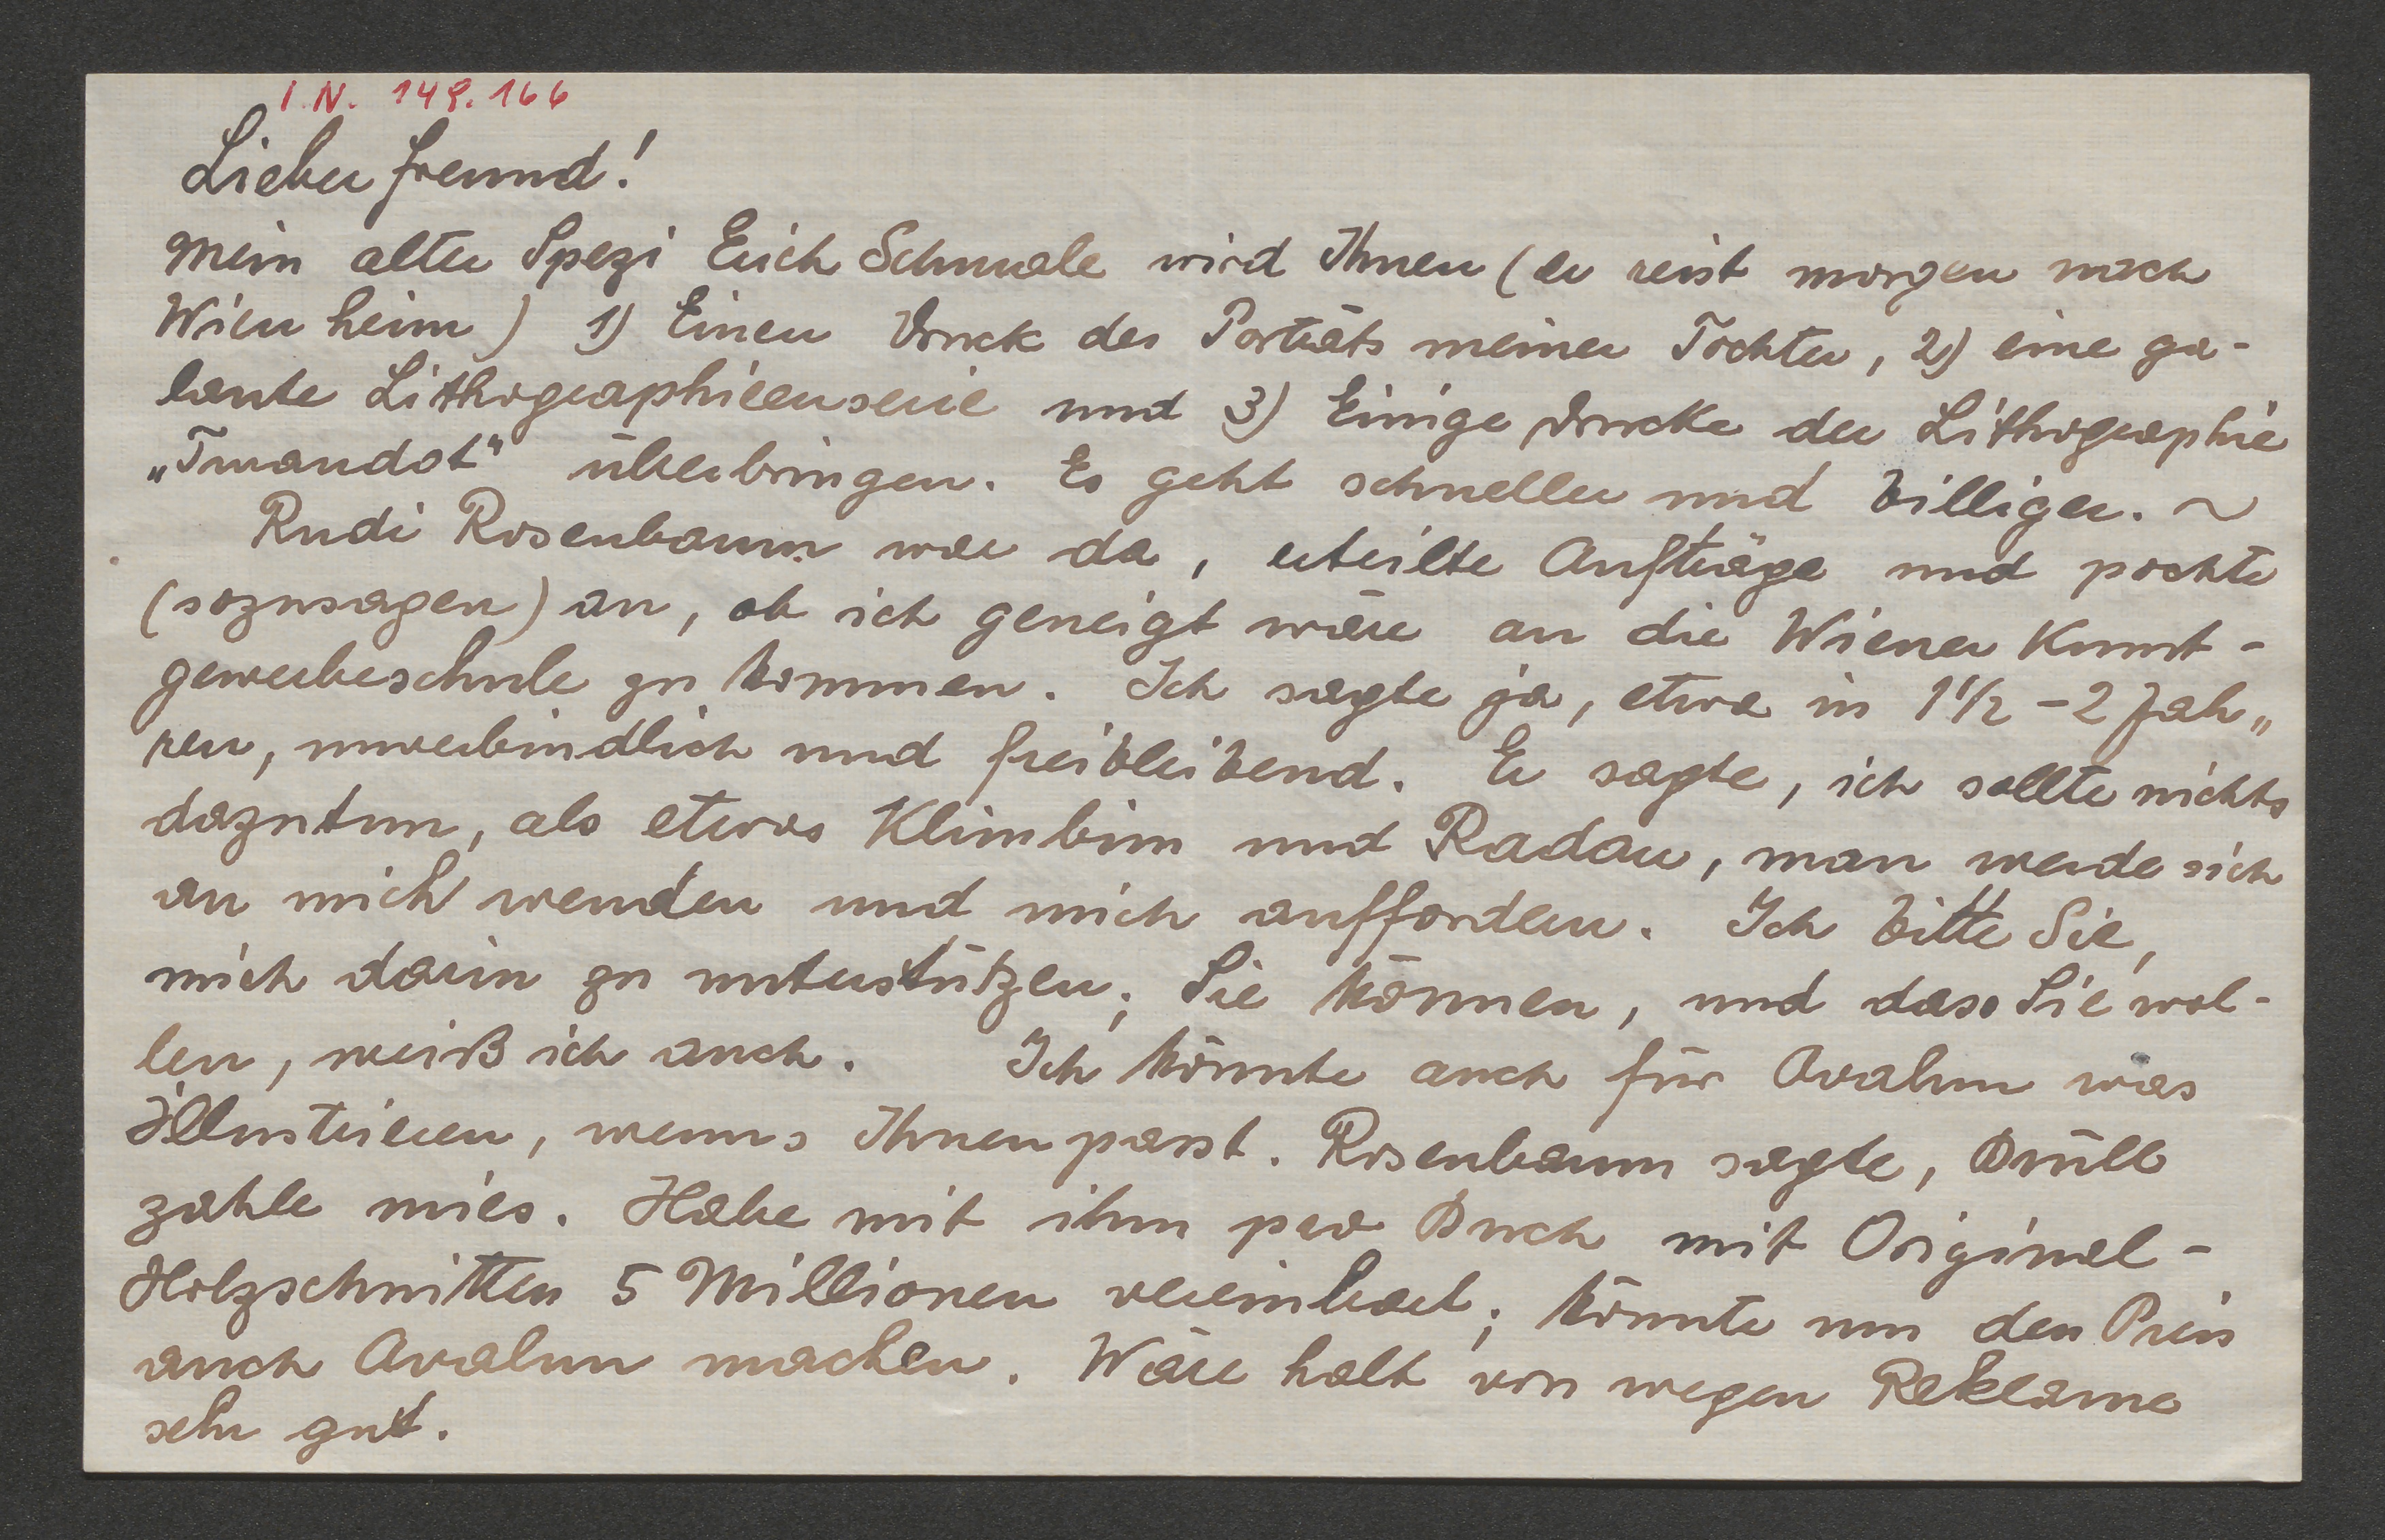 I.N. 149.166
Lieber Freund!
Mein alter Spezi Erich Schmale wird Ihnen (er reist morgen nach
Wien heim) 1) Einen Druck des Porträts meiner Tochter, 2) eine ga-
lante Lithographieenserie und 3) Einige Drucke der Lithographie
„Turandot“ überbringen. Es geht schneller und billiger. ~
Rudi Rosenbaum war da, erteilte Aufträge und pochte
(sozusagen) an, ob ich geneigt wäre an die Wiener Kunst-
gewerbeschule zu kommen. Ich sagte ja, etwa in 1½ - 2 Jah„
ren, unverbindlich und freibleibend. Er sagte, ich sollte nichts
dazutun, als etwas Klimbim und Radau, man werde sich
an mich wenden und mich auffordern. Ich bitte Sie,
mich darin zu unterstützen; Sie können, und dass Sie wol-
len, weiß ich auch. Ich könnte auch für Avalun was
Illustrieren, wenns Ihnen passt. Rosenbaum sagte, Brüll
zahle mies. Habe mit ihm pro Buch mit Original-
Holzschnitten 5 Millionen vereinbart; könnte um den Preis
auch Avalun machen. Wäre halt von wegen Reklame
sehr gut.